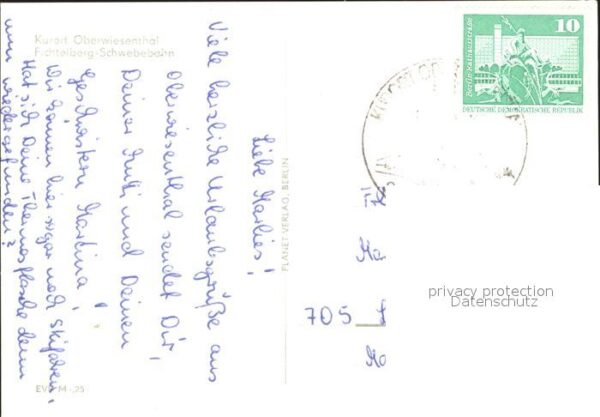 Kurort Oberwiesenthal
Fichtelberg-Schwebebahn
Liebe Marlies!
Viele herzliche Urlaubsgrüße aus
Oberwiesenthal sendet Dir,
Deiner Mutti und Deinen
Geschwistern Martina,
Wir können hier sogar noch Skifahren.
Hat sich Deine Thermosflasche denn
nun wiedergefunden?
EVP M -,25
PLANET VERLAG, BERLIN
10
Berlin, Rathausstraße
DEUTSCHE DEMOKRATISCHE REPUBLIK
Ma
705
privacy protection
Datenschutz